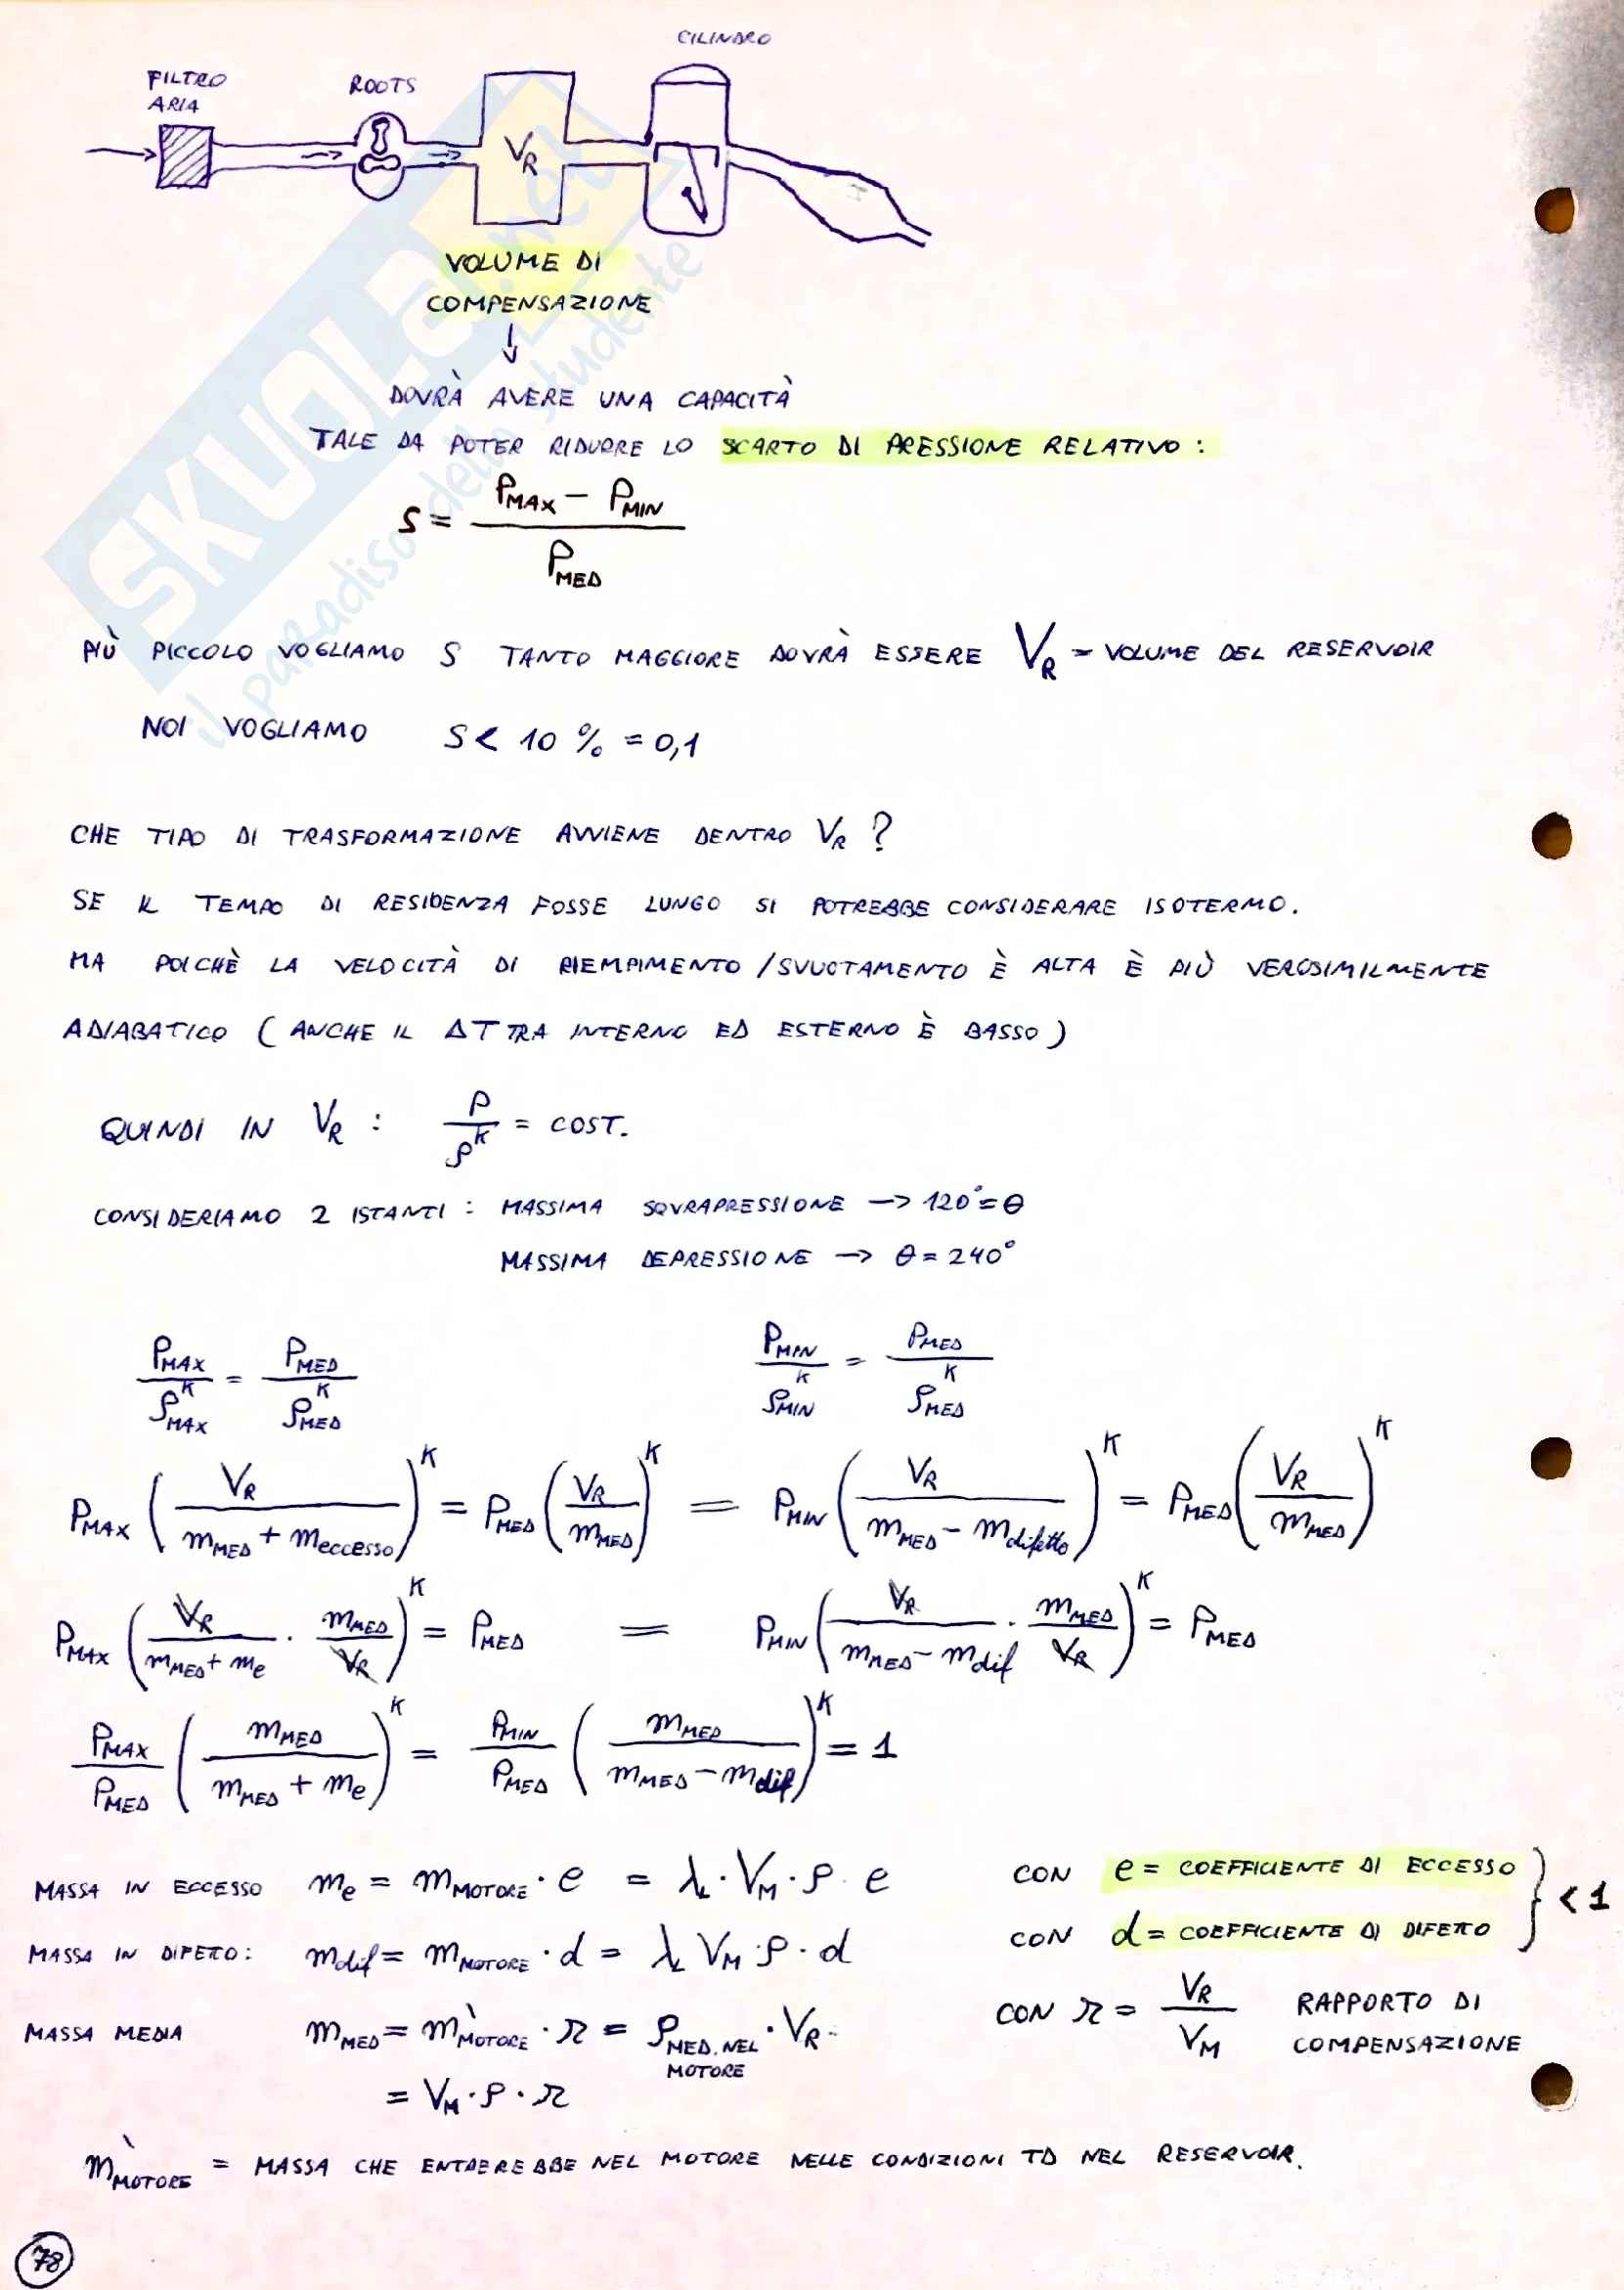 CILINDRO
FILTRO
ARIA
ROOTS
V_R
VOLUME DI
COMPENSAZIONE
↓
DOVRÀ AVERE UNA CAPACITÀ
TALE DA POTER RIDURRE LO SCARTO DI PRESSIONE RELATIVO :
S = (P_MAX - P_MIN) / P_MED
PIÙ PICCOLO VOGLIAMO S TANTO MAGGIORE DOVRÀ ESSERE V_R = VOLUME DEL RESERVOIR
NOI VOGLIAMO S < 10 % = 0,1
CHE TIPO DI TRASFORMAZIONE AVVIENE DENTRO V_R ?
SE IL TEMPO DI RESIDENZA FOSSE LUNGO SI POTREBBE CONSIDERARE ISOTERMO.
MA POICHÈ LA VELOCITÀ DI RIEMPIMENTO / SVUOTAMENTO È ALTA È PIÙ VEROSIMILMENTE
ADIABATICO ( ANCHE IL ΔT TRA INTERNO ED ESTERNO È BASSO )
QUINDI IN V_R : P / ρ^K = COST.
CONSIDERIAMO 2 ISTANTI : MASSIMA SOVRAPRESSIONE → 120° = θ
MASSIMA DEPRESSIONE → θ = 240°
P_MAX / ρ_MAX^K = P_MED / ρ_MED^K P_MIN / ρ_MIN^K = P_MED / ρ_MED^K
P_MAX ( V_R / (m_MED + m_eccesso) )^K = P_MED ( V_R / m_MED )^K = P_MIN ( V_R / (m_MED - m_difetto) )^K = P_MED ( V_R / m_MED )^K
P_MAX ( V_R / (m_MED + m_e) · m_MED / V_R )^K = P_MED = P_MIN ( V_R / (m_MED - m_dif) · m_MED / V_R )^K = P_MED
P_MAX / P_MED ( m_MED / (m_MED + m_e) )^K = P_MIN / P_MED ( m_MED / (m_MED - m_dif) )^K = 1
MASSA IN ECCESSO m_e = m_MOTORE · e = λ_L · V_M · ρ · e CON e = COEFFICIENTE DI ECCESSO
MASSA IN DIFETTO : m_dif = m_MOTORE · d = λ_L V_M · ρ · d CON d = COEFFICIENTE DI DIFETTO } < 1
MASSA MEDIA m_MED = m̀_MOTORE · r = ρ_MED. NEL MOTORE · V_R = CON r = V_R / V_M RAPPORTO DI COMPENSAZIONE
= V_M · ρ · r
m̀_MOTORE = MASSA CHE ENTREREBBE NEL MOTORE NELLE CONDIZIONI TD NEL RESERVOIR.
78
SKUOLA.net
il paradiso dello studente